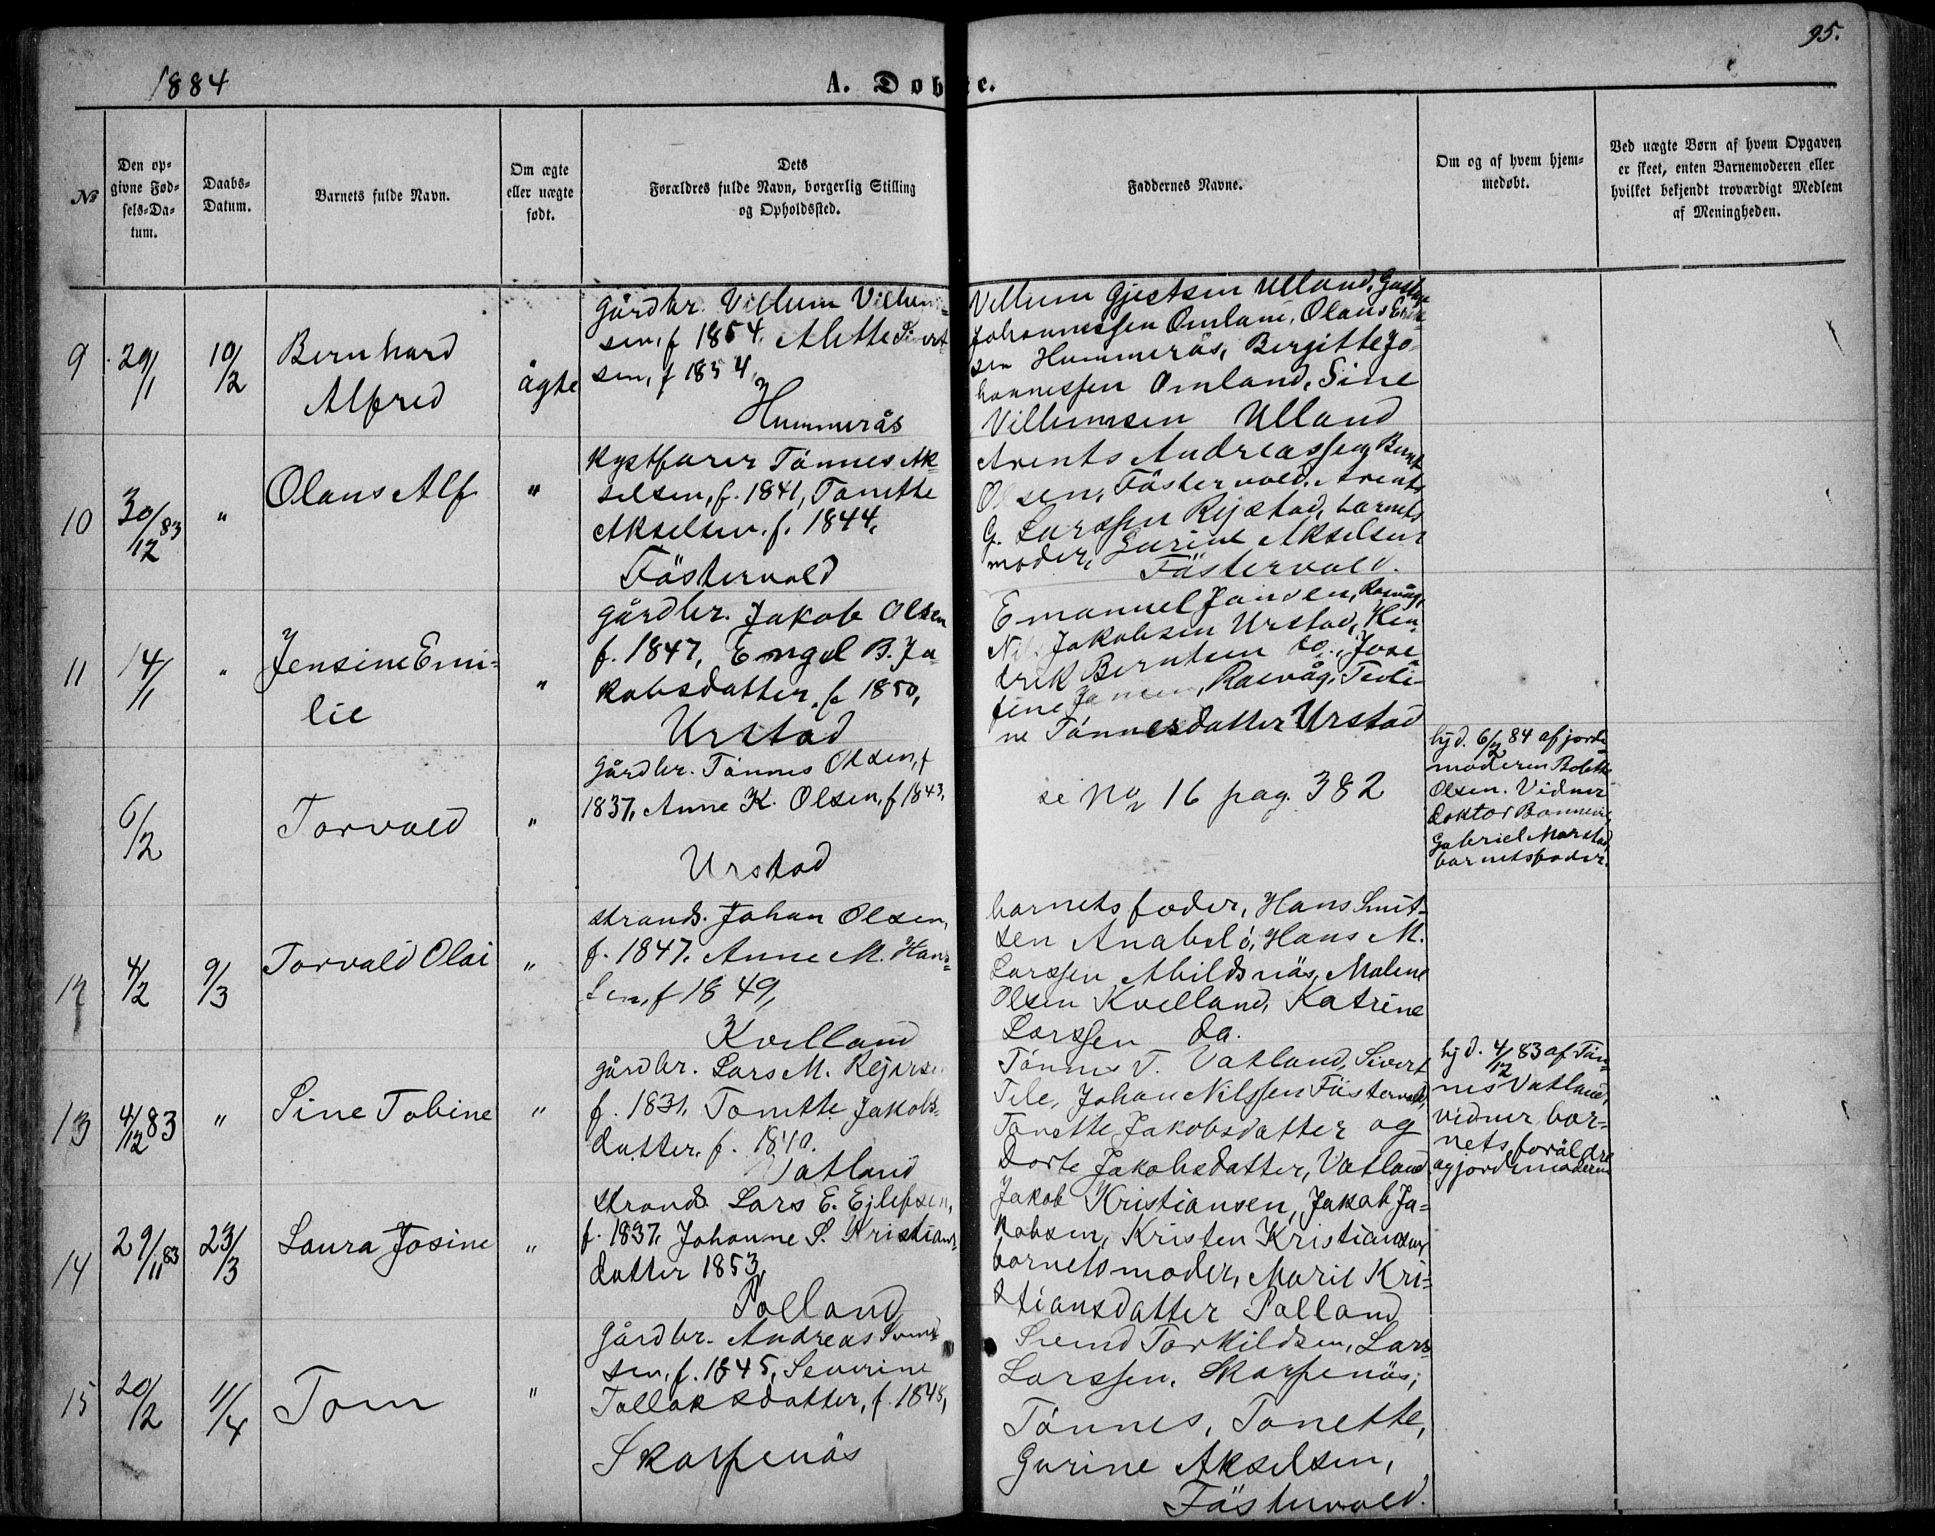 95.
1884
A. Døbte.
№
Den op-
givne Fød-
sels-Da-
tum.
Daabs-
Datum.
Barnets fulde Navn.
Om ægte
eller uægte
født.
Dets
Forældres fulde Navn, borgerlig Stilling
og Opholdssted.
Faddernes Navne.
Om og af hvem hjem-
medøbt.
Ved uægte Børn af hvem Opgaven
er skeet, enten Barnemoderen eller
hvilket bekjendt troværdigt Medlem
af Menigheden.
9
29/1
10/2
Bernhard
Alfred
ägte
gårdbr. Villum Villum-
sen, f 1854. Alette Sivert-
sen, f 1854,
Hummerås
Villum Gjertsen Ulland,
Johannessen Omland, Olaus Erik-
sen Hummerås, Birgitte Jo-
hannessen Omland, Sine
Villumsen Ulland
10
30/12 83
"
Olaus Alf
"
Kystfarer Tönnes Ak-
selsen, f. 1841, Tonette
Akselsen. f. 1844,
Fästervold
Arents Andreassen, Bernt
Olsen, Fästervold. Arent
G. Larssen Rejestad, barnets
moder, Gurine Akselsen
Fästervold.
11
14/1
"
Jensine Emi-
lie
"
gårdbr. Jakob Olsen
f. 1847, Engel B. Ja-
kobsdatter, f 1850,
Urstad
Emanuel Jansen, Rasvåg,
Jakobsen Urstad, Hen-
drik Berntsen do., Jose-
fine Jansen, Rasvåg,
ne Tönnesdatter Urstad
6/2
Torvald
"
gårdbr. Tönnes Olsen, f
1837, Anne K. Olsen, f 1843,
Urstad
se No 16 pag. 382
hjd. 6/2 84 af jorde-
moderen Bolette
Olsen. Vidner
doktor
Gabriel
barnetsfader.
12
4/2
9/3
Torvald Olai
"
strands. Johan Olsen,
f. 1847. Anne M. Han-
sen, f 1849,
Kvelland
barnets fader, Hans
sen Anabelö, Hans M.
Larssen Abildsnäs, Malene
Olsen Kvelland, Katrine
Larssen do.
13
4/12 83
"
Sine Tobine
"
gårdbr. Lars M. Rejersen
f. 1831, Tonette Jakobs-
datter. f. 1840.
Vatland
Tönnes T. Vatland, Sivert
Tele, Johan Nilssen Fästervold,
Tonette Jakobsdatter og
Dorte Jakobsdatter, Vatland
hjd. 4/12 83 af Tön-
nes Vatland,
vidner bar-
nets foräldre
og jordemoderen
14
29/11 83
23/3
Laura Josine
"
strands. Lars E. Ejlefsen,
f. 1837, Johanne S. Kristians-
datter 1853,
Polland
Jakob Kristiansen, Jakob Ja-
kobsen, Kristen Kristiansen
barnets moder, Marie Kri-
stiansdatter Polland
15
20/2
11/4
Tom
"
gårdbr. Andreas Svend-
sen, f. 1845, Severine
Tollaksdatter, f. 1848,
Skarpenäs
Svend Torkildsen, Lars
Larssen, Skarpenäs;
Tönnes, Tonette,
Gurine Akselsen,
Fästervold.